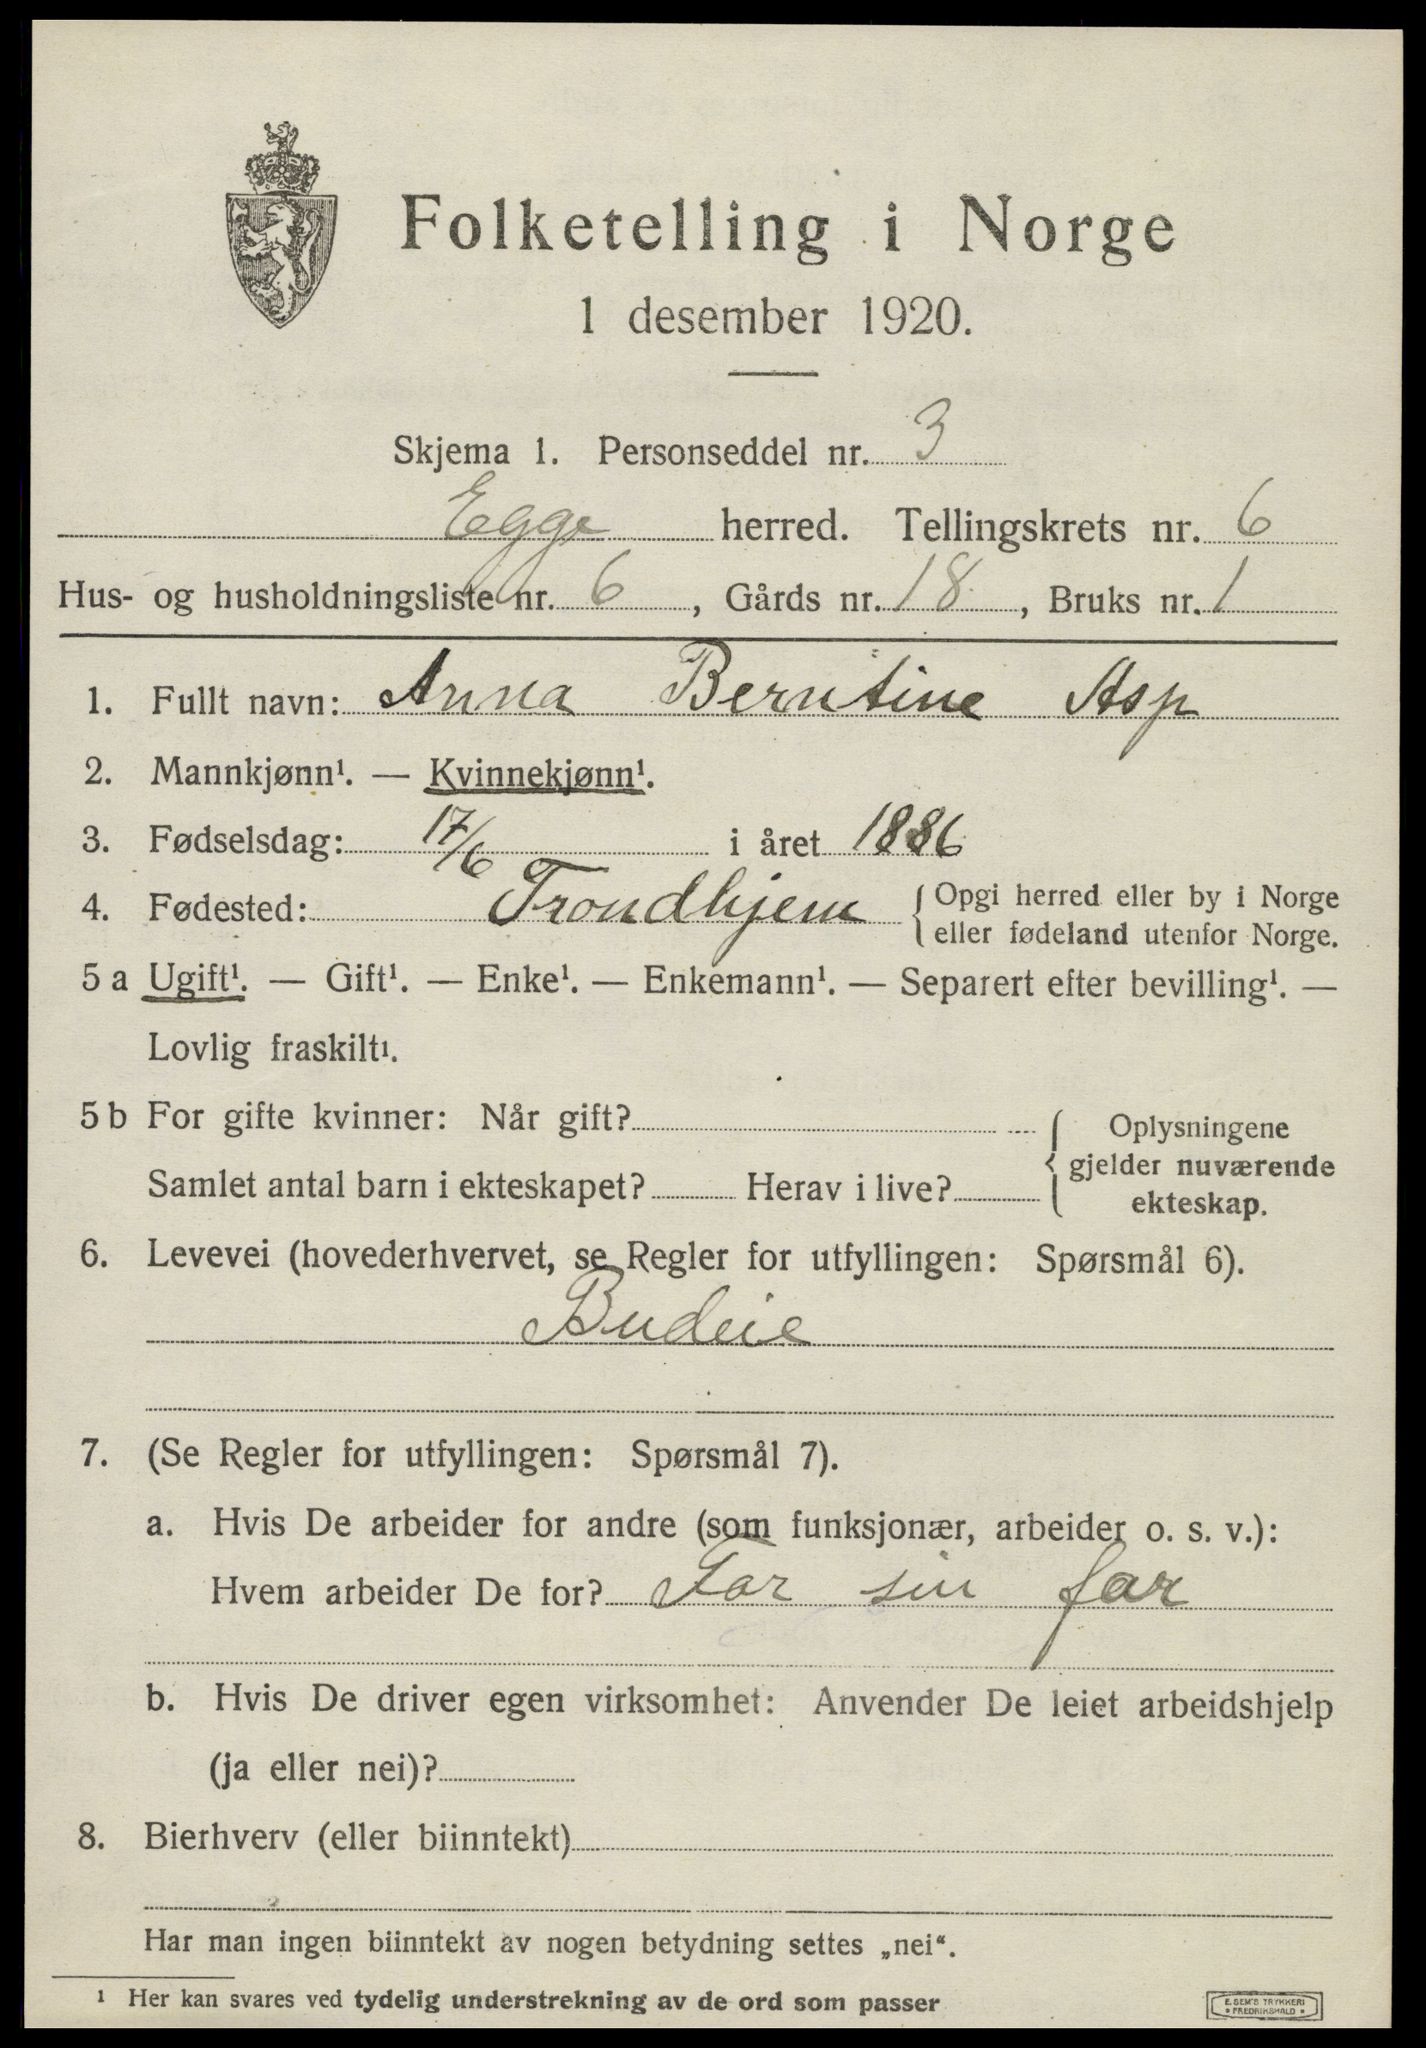 Folketelling i Norge
1 desember 1920.
Skjema 1. Personseddel nr. 3
Egge herred. Tellingskrets nr. 6
Hus- og husholdningsliste nr. 6, Gårds nr. 18, Bruks nr. 1
1. Fullt navn: Anna Berntine Asp
2. Mannkjønn¹. — Kvinnekjønn¹.
3. Fødselsdag: 17/6 i året 1886
4. Fødested: Trondhjem { Opgi herred eller by i Norge
eller fødeland utenfor Norge.
5 a Ugift¹. — Gift¹. — Enke¹. — Enkemann¹. — Separert efter bevilling¹. —
Lovlig fraskilt¹.
5 b For gifte kvinner: Når gift? { Oplysningene
gjelder nuværende
Samlet antal barn i ekteskapet? Herav i live?
ekteskap.
6. Levevei (hovederhvervet, se Regler for utfyllingen: Spørsmål 6).
Budeie
7. (Se Regler for utfyllingen: Spørsmål 7).
a. Hvis De arbeider for andre (som funksjonær, arbeider o. s. v.):
Hvem arbeider De for? For sin far
b. Hvis De driver egen virksomhet: Anvender De leiet arbeidshjelp
(ja eller nei)?
8. Bierhverv (eller biinntekt)
Har man ingen biinntekt av nogen betydning settes „nei“.
¹ Her kan svares ved tydelig understrekning av de ord som passer
E. SEM'S TRYKKERI
• FREDRIKSHALD •